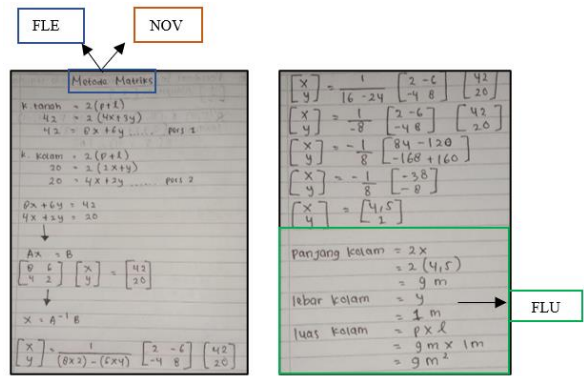 FLE
NOV
Metode Matriks
K. tanah = 2(p+l)
42 = 2(4x+3y)
42 = 8x+6y ...... pers 1
K. Kolam = 2(p+l)
20 = 2(2x+y)
20 = 4x+2y ...... pers 2
8x + 6y = 42
4x + 2y = 20
↓
Ax = B
[8 6 / 4 2] [x / y] = [42 / 20]
↓
X = A⁻¹ B
[x / y] = 1/((8x2) - (6x4)) [2 -6 / -4 8] [42 / 20]
[x / y] = 1/(16-24) [2 -6 / -4 8] [42 / 20]
[x / y] = 1/-8 [2 -6 / -4 8] [42 / 20]
[x / y] = -1/8 [84 - 120 / -168 + 160]
[x / y] = -1/8 [-38 / -8]
[x / y] = [4,5 / 1]
Panjang kolam = 2x
= 2(4,5)
= 9 m
lebar kolam = y
= 1 m
luas kolam = p x l
= 9 m x 1m
= 9 m²
FLU